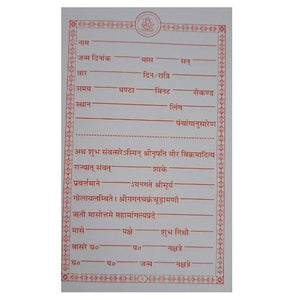 नाम
जन्म दिनांक मास सन्
वार दिन/रात्रि
समय घण्टा मिनट सैकण्ड
स्थान लिंग
पंचांगानुसारेण
अथ शुभ संवत्सरेऽस्मिन् श्रीनृपति वीर विक्रमादित्य
राज्यात् संवत् शाके
प्रवर्त्तमाने ऽयनगते श्रीसूर्य
गोलावलम्बिते। श्रीगगनचक्रचूडामणौ
ऋतौ मासोत्तमे महामांगल्यप्रदे
मासे पक्षे शुभ तिथौ
वासरे घ० प० नक्षत्रे
घ० प० जन्म नक्षत्रे